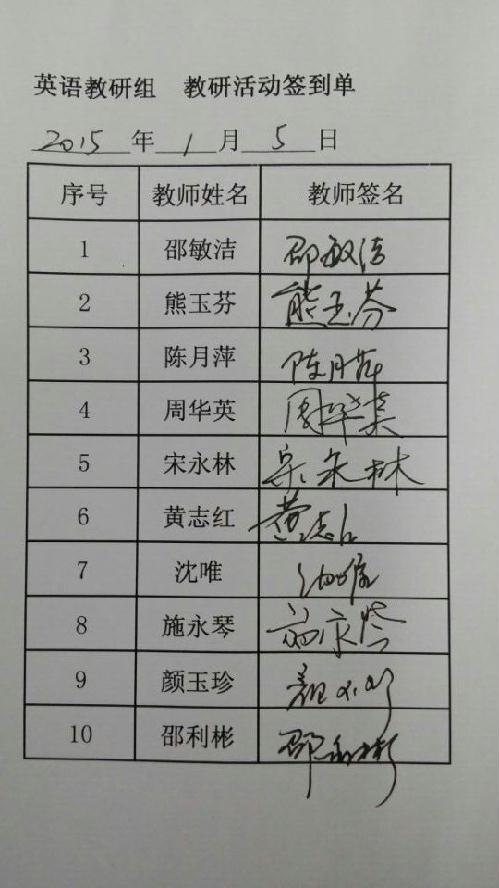 英语教研组 教研活动签到单
2015 年 1 月 5 日
序号 教师姓名 教师签名
1 邵敏洁 邵敏洁
2 熊玉芬 熊玉芬
3 陈月萍 陈月萍
4 周华英 周华英
5 宋永林 宋永林
6 黄志红 黄志红
7 沈唯
8 施永琴 施永琴
9 颜玉珍
10 邵利彬 邵利彬